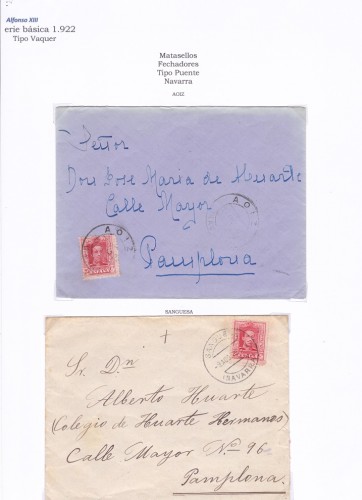 Alfonso XIII
erie básica 1.922
Tipo Vaquer
Matasellos
Fechadores
Tipo Puente
Navarra
AOIZ
Señor
Don Jose Maria de Huarte
Calle Mayor
Pamplona
AOIZ
AOIZ
SANGUESA
+
Sr. Dn
Alberto Huarte
(Colegio de Huarte Hermanos)
Calle Mayor No 96
Pamplona.
(NAVARRA)